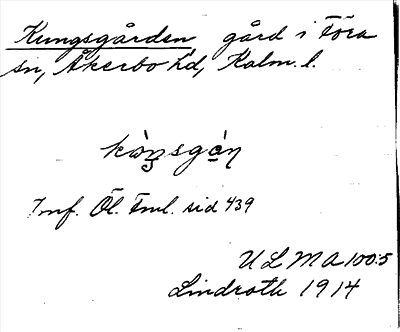 Kungsgården gård i Föra
sn, Åkerbo hd, Kalm. l.
Jmf. Öl. Fml. sid 439
ULMA 100:5
Lindroth 1914